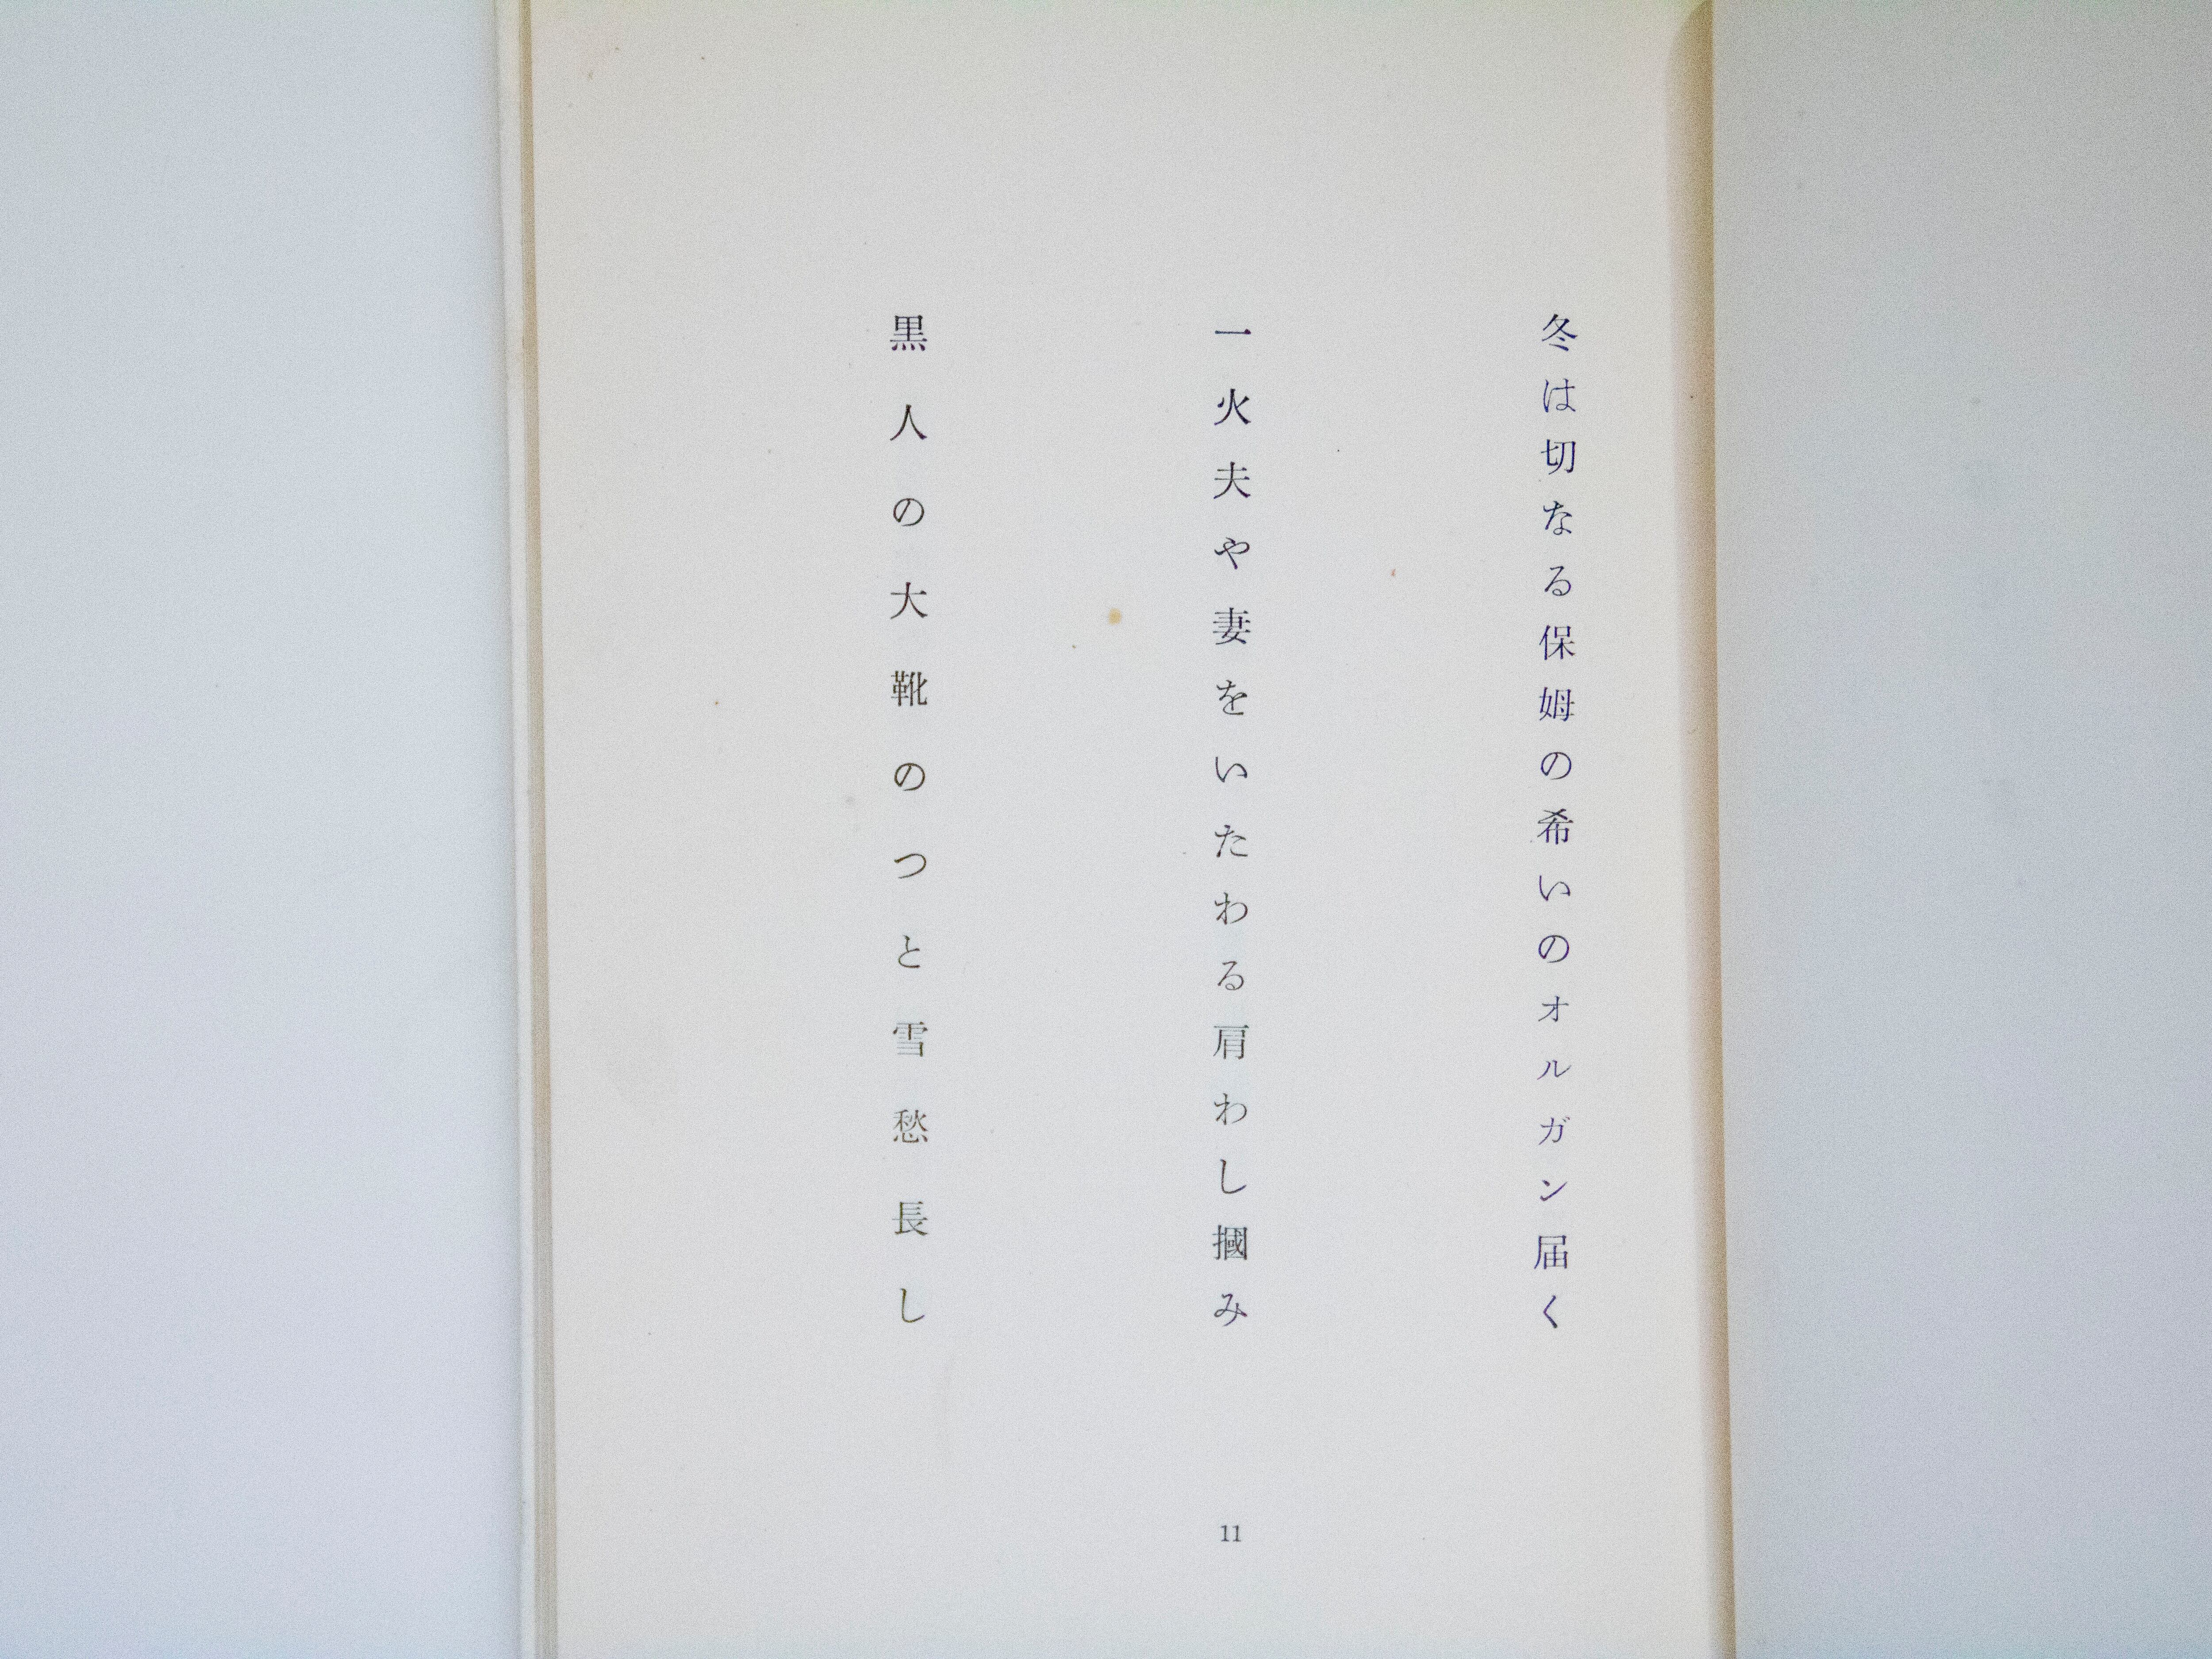 冬は切なる保姆の希いのオルガン届く
一火夫や妻をいたわる肩わし摑み
黒人の大靴のつと雪愁長し
11